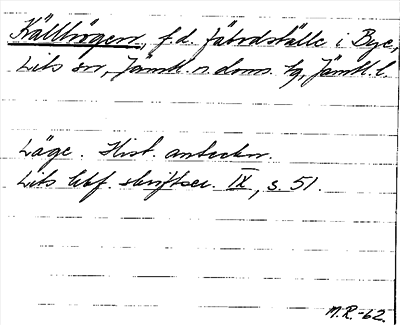 Källhögen, f.d. fäbodställe i Bye,
Lits sn, Jämtl. n. doms. tg, Jämtl. l.
Läge. Hist. anteckn.
Lits hbf. skriftser. IX, s. 51.
M.R.-62.